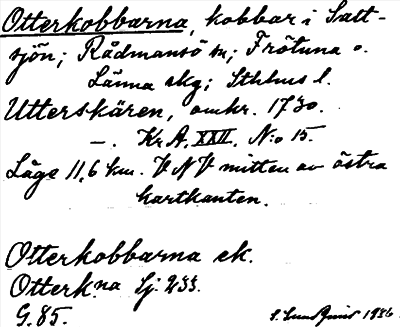 Otterkobbarna, kobbar i Salt-
sjön; Rådmansö sn; Frötuna o.
Länna skg; Sthlms l.
Utterskären, omkr. 1730.
—. Kr A. XXII. N:o 15.
Läge 11,6 km. VNV mitten av östra
kartkanten.
Otterkobbarna ek.
Otterk.na Sj. 233.
G. 85.
1936.